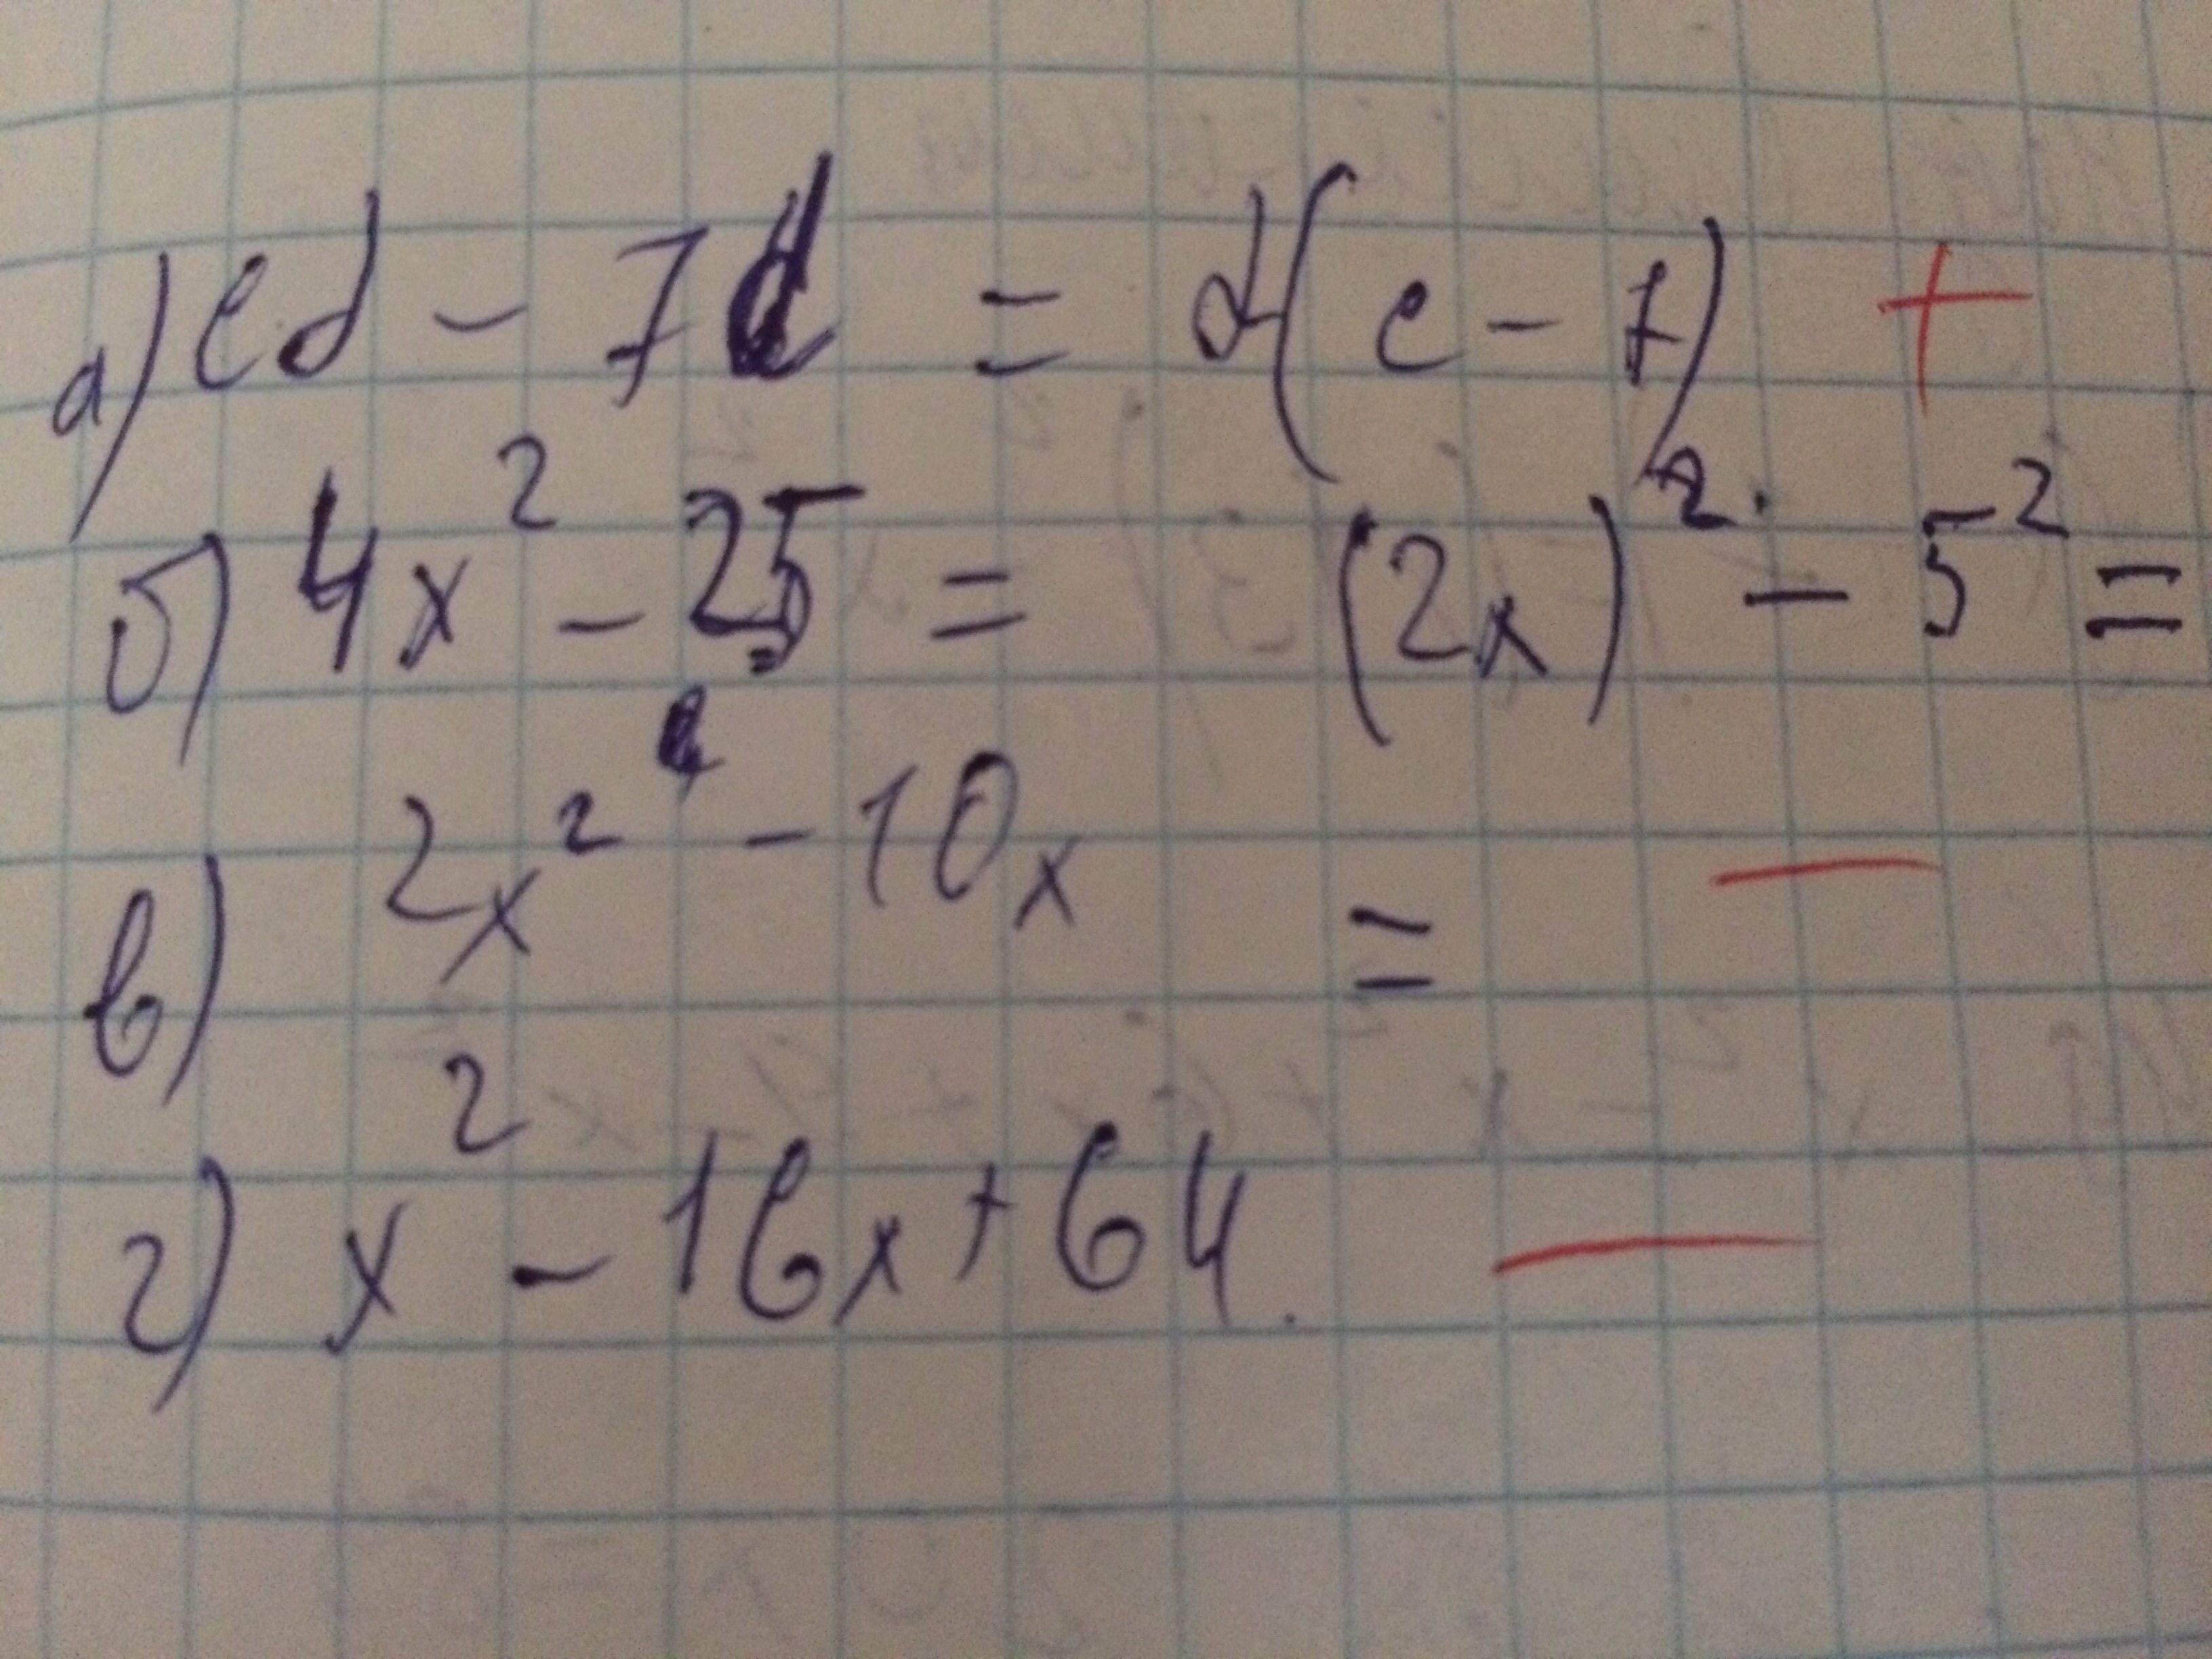 а) cd - 7d = d(c - 7) +
б) 4x² - 25 = (2x)² - 5² =
в) 2x² - 10x = —
г) x² - 16x + 64. —